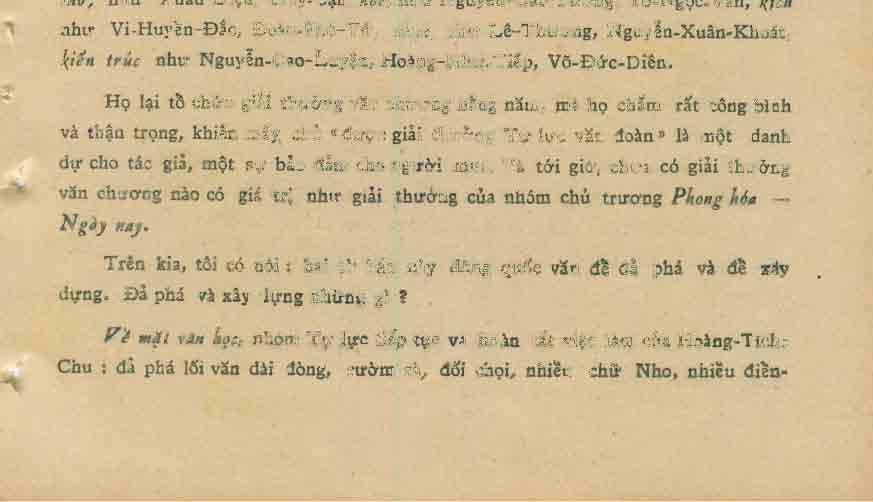 như Vi-Huyền-Đắc, như Lê-Thương, Nguyễn-Xuân-Khoát,
kiến trúc như Nguyễn-Cao-Luyện, Hoàng-Như-Tiếp, Võ-Đức-Diên.
Họ lại tổ chức giải thưởng văn chương hằng năm, mà họ chấm rất công bình
và thận trọng, khiến mấy chữ « được giải thưởng Tự lực văn đoàn » là một danh
dự cho tác giả, một sự bảo đảm cho người mua. Và tới giờ, chưa có giải thưởng
văn chương nào có giá trị như giải thưởng của nhóm chủ trương Phong hóa —
Ngày nay.
Trên kia, tôi có nói : hai tờ báo này dùng quốc văn để đả phá và để xây
dựng. Đả phá và xây dựng những gì ?
Về mặt văn học, nhóm Tự lực tiếp tục và hoàn tất việc làm của Hoàng-Tích-
Chu : đả phá lối văn dài dòng, rườm rà, đối chọi, nhiều chữ Nho, nhiều điển-